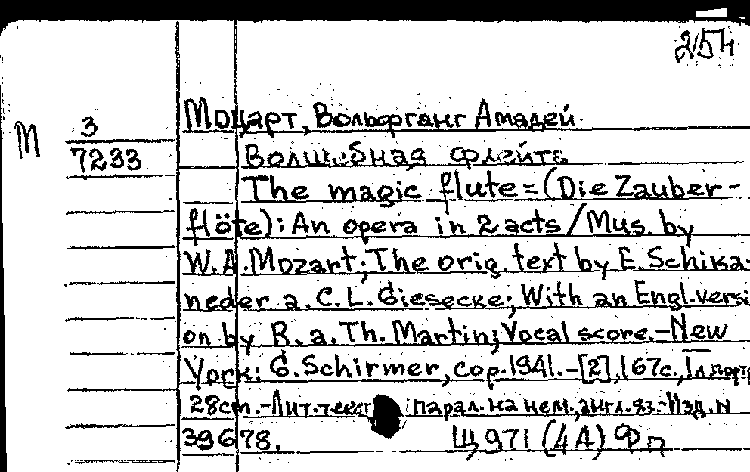 254
М 3 Моцарт, Вольфганг Амадей
7233 Волшебная флейта
The magic flute = (Die Zauber-
flöte): An opera in 2 acts / Mus. by
W. A. Mozart; The orig. text by E. Schika-
neder a. C. L. Giesecke; With an Engl. versi
on by R. a. Th. Martin; Vocal score. - New
York: G. Schirmer, cop. 1941. - [2], 167с., 1 л. портр
28см. - Лит. текст парал. на нем., англ. яз. - Изд. N
39678. Щ971(4А)Фп